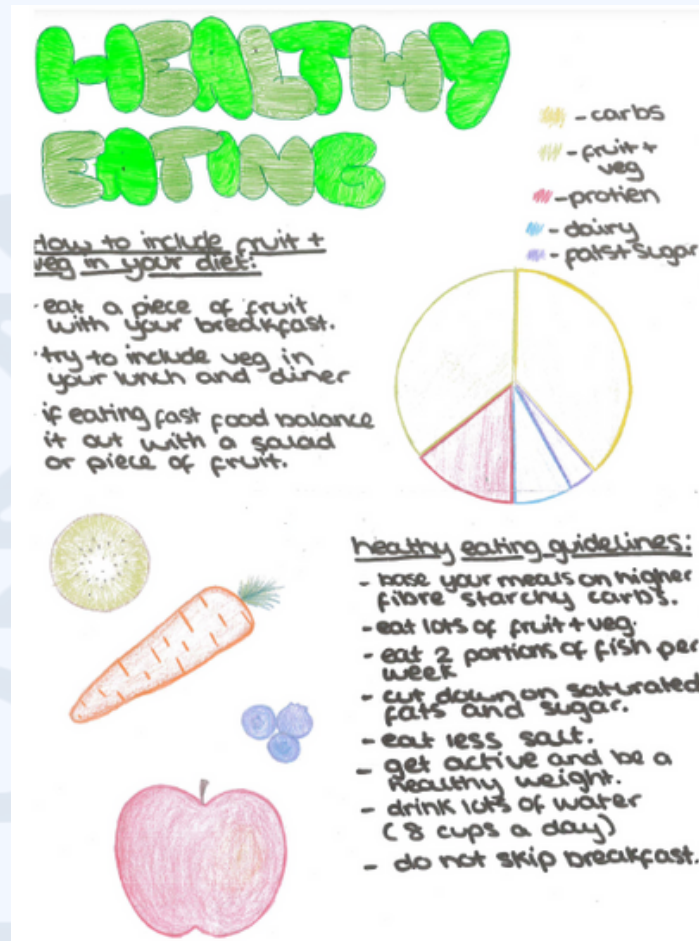 HEALTHY
EATING
- carbs
- fruit +
veg
- protien
- dairy
- fats+sugar
How to include fruit +
veg in your diet:
· eat a piece of fruit
with your breakfast.
· try to include veg in
your lunch and diner
if eating fast food balance
it out with a salad
or piece of fruit.
healthy eating guidelines:
- base your meals on higher
fibre starchy carbs.
- eat lots of fruit + veg.
- eat 2 portions of fish per
week
- cut down on saturated
fats and sugar.
- eat less salt.
- get active and be a
healthy weight.
- drink lots of water
(8 cups a day)
- do not skip breakfast.